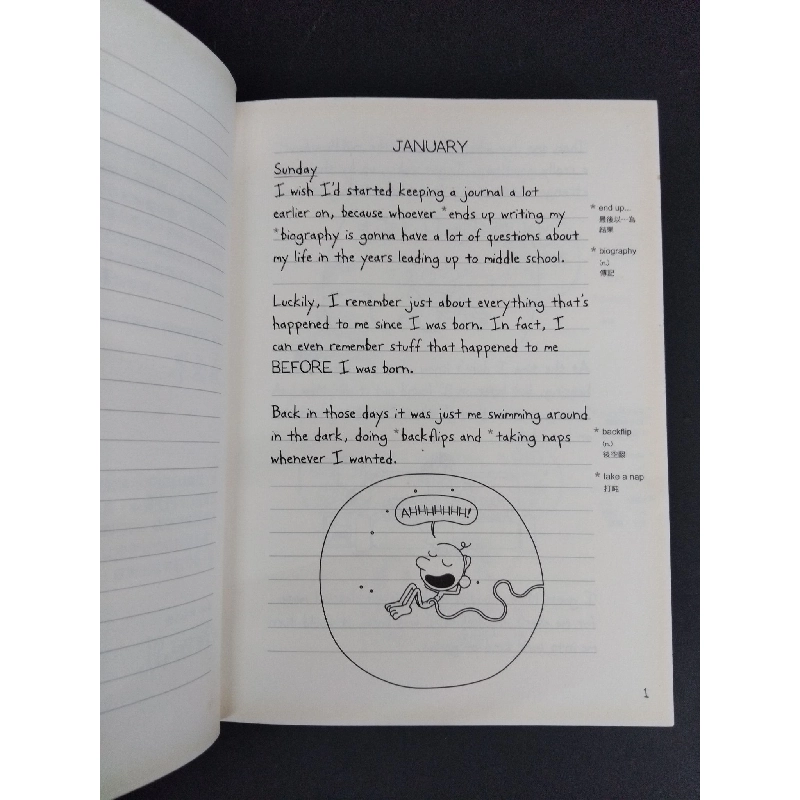 JANUARY
Sunday
I wish I'd started keeping a journal a lot
earlier on, because whoever *ends up writing my
*biography is gonna have a lot of questions about
my life in the years leading up to middle school.
Luckily, I remember just about everything that's
happened to me since I was born. In fact, I
can even remember stuff that happened to me
BEFORE I was born.
Back in those days it was just me swimming around
in the dark, doing *backflips and *taking naps
whenever I wanted.
AHHHHHH!
* end up...
最後以…為
結果
* biography
(n.)
傳記
* backflip
(n.)
後空翻
* take a nap
打盹
1